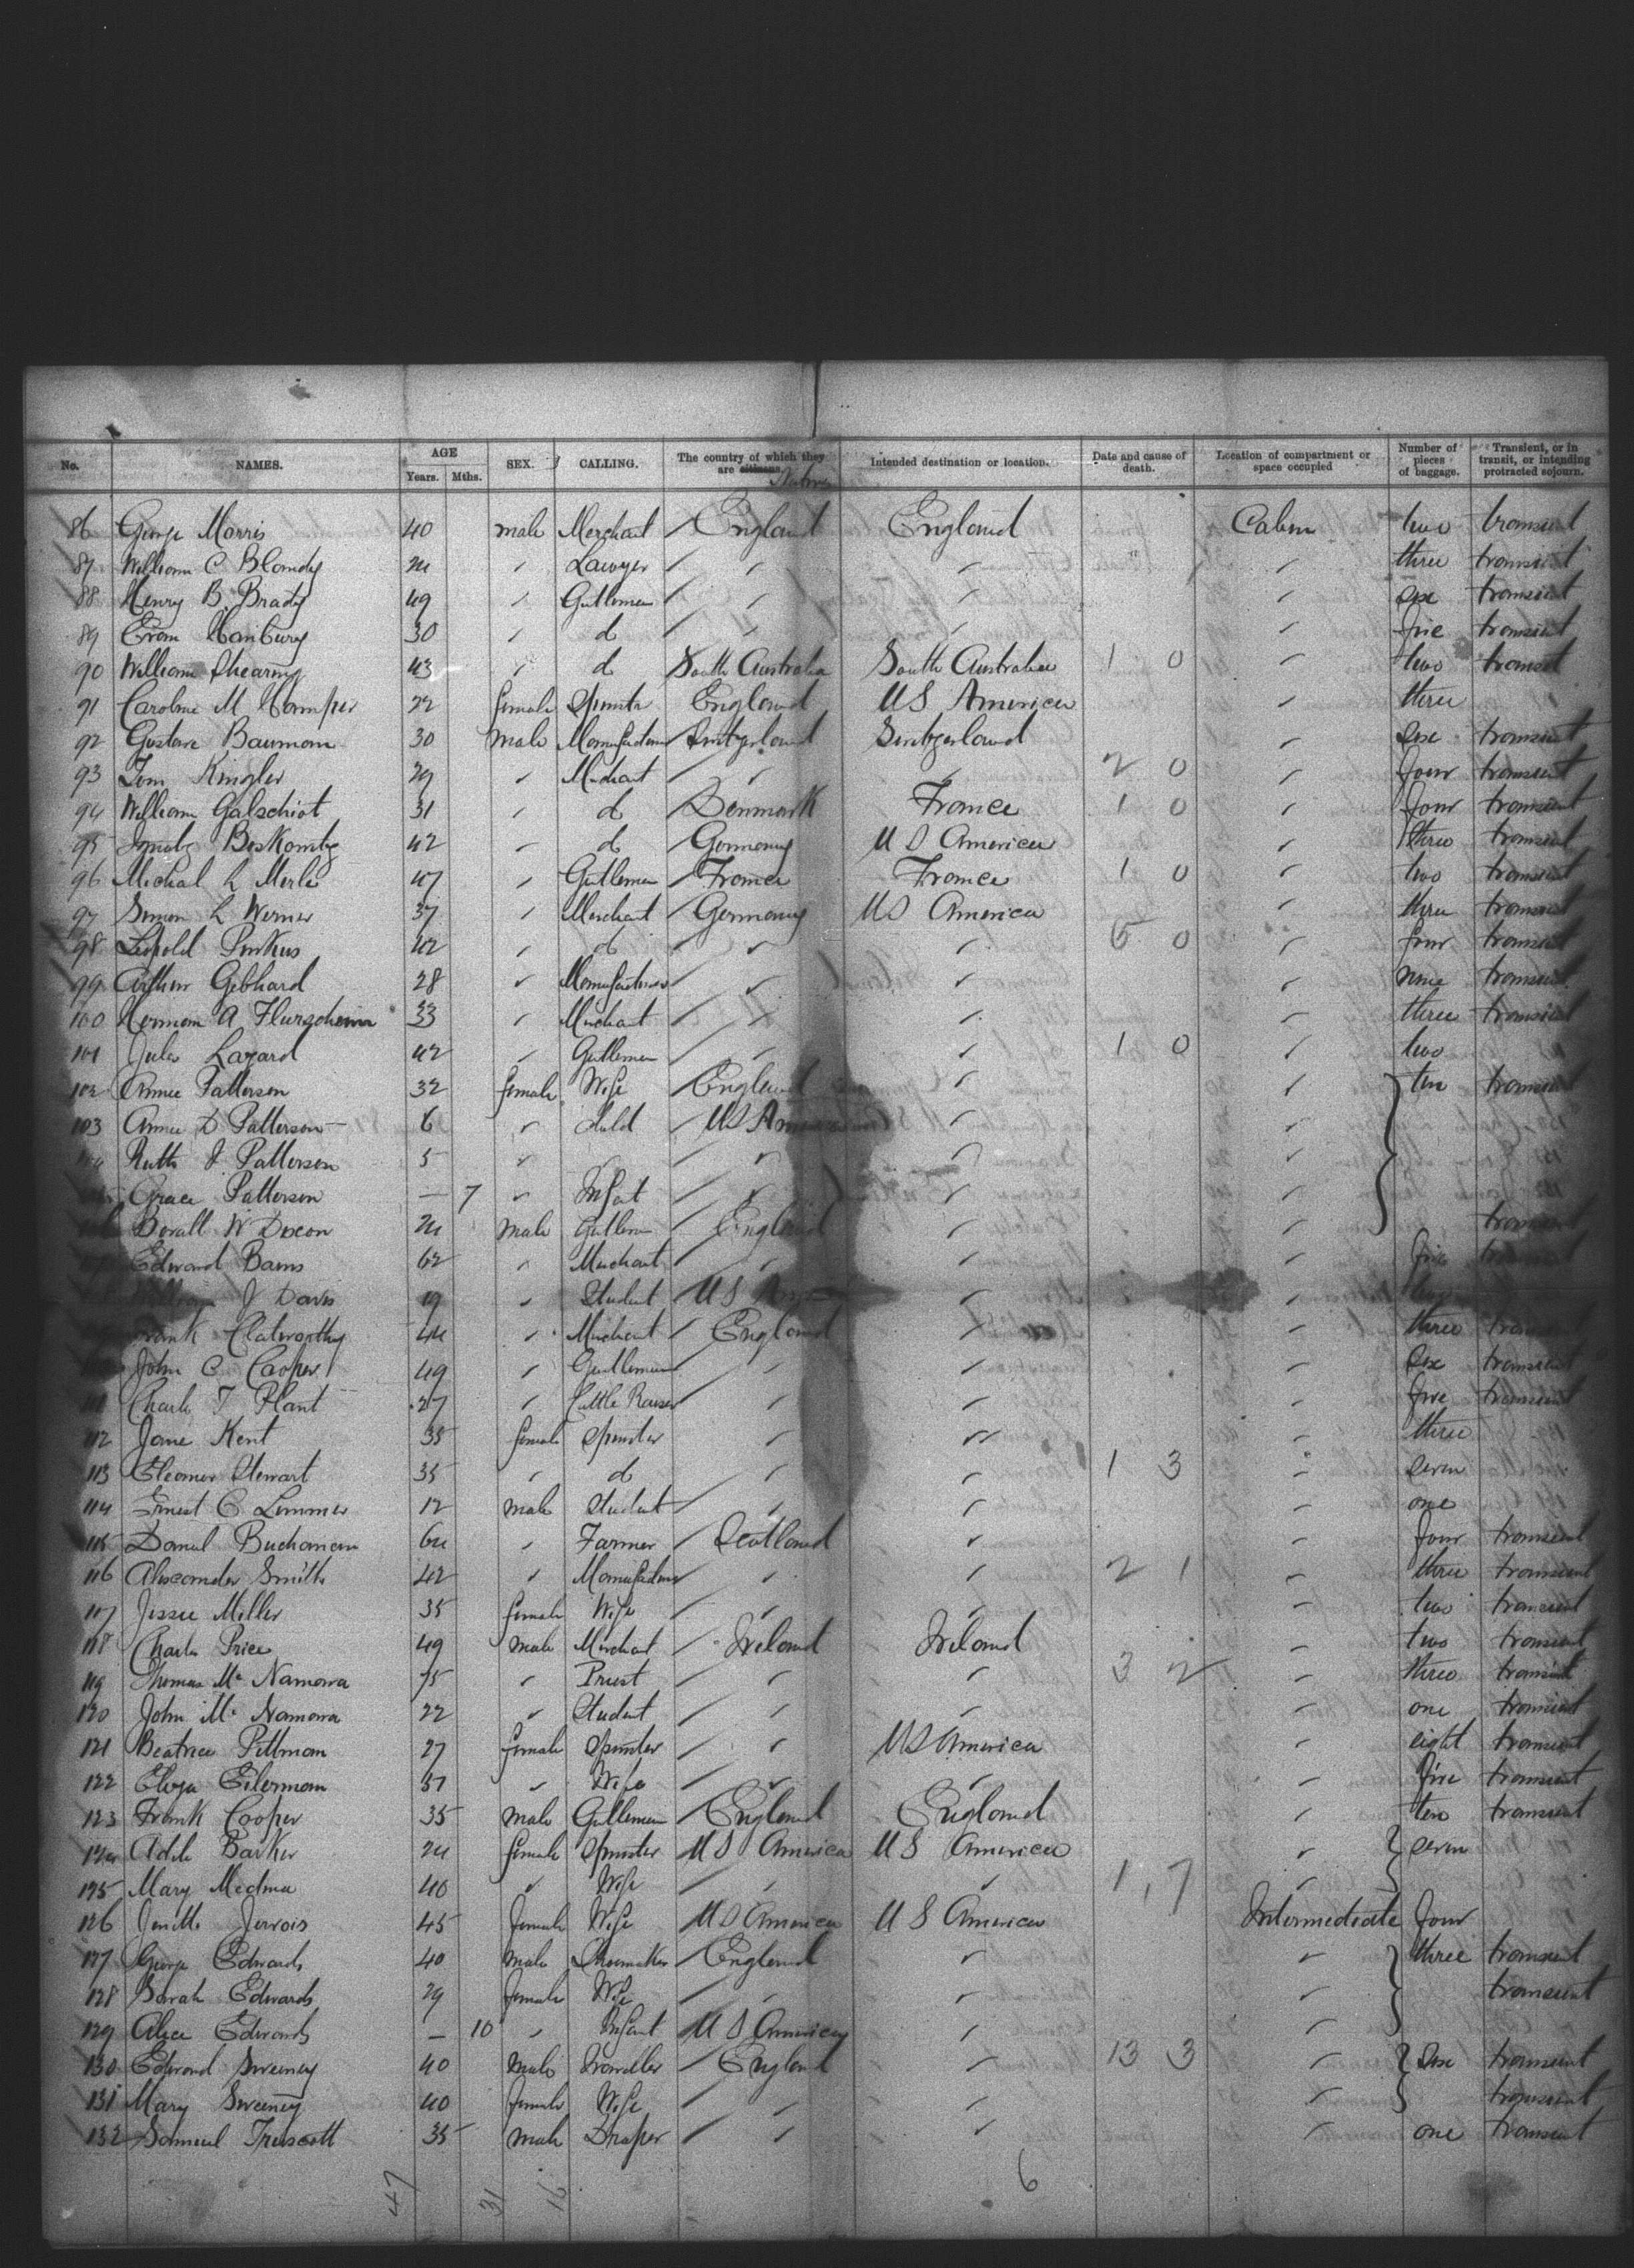 No. NAMES. AGE Years. Mths. SEX. CALLING. The country of which they are citizens. Intended destination or location. Date and cause of death. Location of compartment or space occupied Number of pieces of baggage. Transient, or in transit, or intending protracted sojourn.
86 George Morris 40 male Merchant / England England Cabin two transient
87 William C Blandy 24 " Lawyer / " " " three transient
88 Henry B. Brady 49 " Gentleman / " " " six transient
89 30 " do / " " " five transient
90 William Shearing 43 " do South Australia South Australia 1 0 " two transient
91 Caroline M 22 female Spinster England US America " three
92 Gustave Bauman 30 male Manufacturer Switzerland Switzerland " six transient
93 Kingler 29 " Merchant / " " 2 0 " four transient
94 William Galschiot 31 " do / Denmark France 1 0 " four transient
95 42 " do / Germany U S America " three transient
96 Michal L Merle 47 " Gentleman / France France 1 0 " two transient
97 Simon L Werner 37 " Merchant / Germany US America " three transient
98 Leopold Pinkus 42 " do / " " 0 " four transient
99 Arthur Gebhard 28 " Manufacturer / " " " nine transient
100 Herman A Flurscheim 33 " Merchant / " " " three transient
101 Jules Lazard 42 " Gentleman / " " 1 0 " two
102 Annie Patterson 32 female Wife / England " " ten transient
103 Annie D Patterson 6 " child / US America " "
Ruth J. Patterson 5 " " / " " "
Grace Patterson — 7 " Infant / " " "
W Dixon 24 male Gentleman / England " " transient
Edward 62 " Merchant / " " " five transient
J Davis 19 " Student / U S " "
Frank Clatworthy 44 " Merchant / England " " three transient
John C Cooper 49 " Gentleman / " " " six transient
111 Charles T Plant 27 " Cattle Raiser / " " " five transient
112 Jane Kent 35 female Spinster " " " three
113 Eleanor Stewart 35 " do / " " 1 3 " seven
114 Ernest C 12 male Student / " " " one
115 Daniel Buchanan 64 " Farmer / Scotland " " four transient
116 Alexander Smith 42 " Manufacturer / " " 2 1 " three transient
117 Jessie Miller 35 female Wife / " " " two transient
118 Charles Price 49 male Merchant / Ireland Ireland " two transient
119 Thomas Mc Namara 75 " Priest / " " 3 2 " three transient
120 John Mc Namara 22 " Student / " " " one transient
121 Beatrice Pittman 27 female Spinster / " US America " eight transient
122 Eliza Eilerman 37 " Wife / " " " five transient
123 Frank Cooper 35 male Gentleman / England England " ten transient
124 Adele Barker 24 female Spinster U S America U S America " seven
125 Mary Medina 40 " Wife / " " 1, 7 "
126 Jervois 45 female Wife U S America U S America Intermediate four
127 George Edwards 40 male Shoemaker / England " " three transient
128 Sarah Edwards 29 female Wife / " " " transient
129 Alice Edwards — 10 " Infant U S America " "
130 Edward Sweeney 40 male Traveller / England " 13 3 " six transient
131 Mary Sweeney 40 female Wife / " " " transient
132 Samuel Truscott 35 male Draper / " " " one transient
47 31 16 6